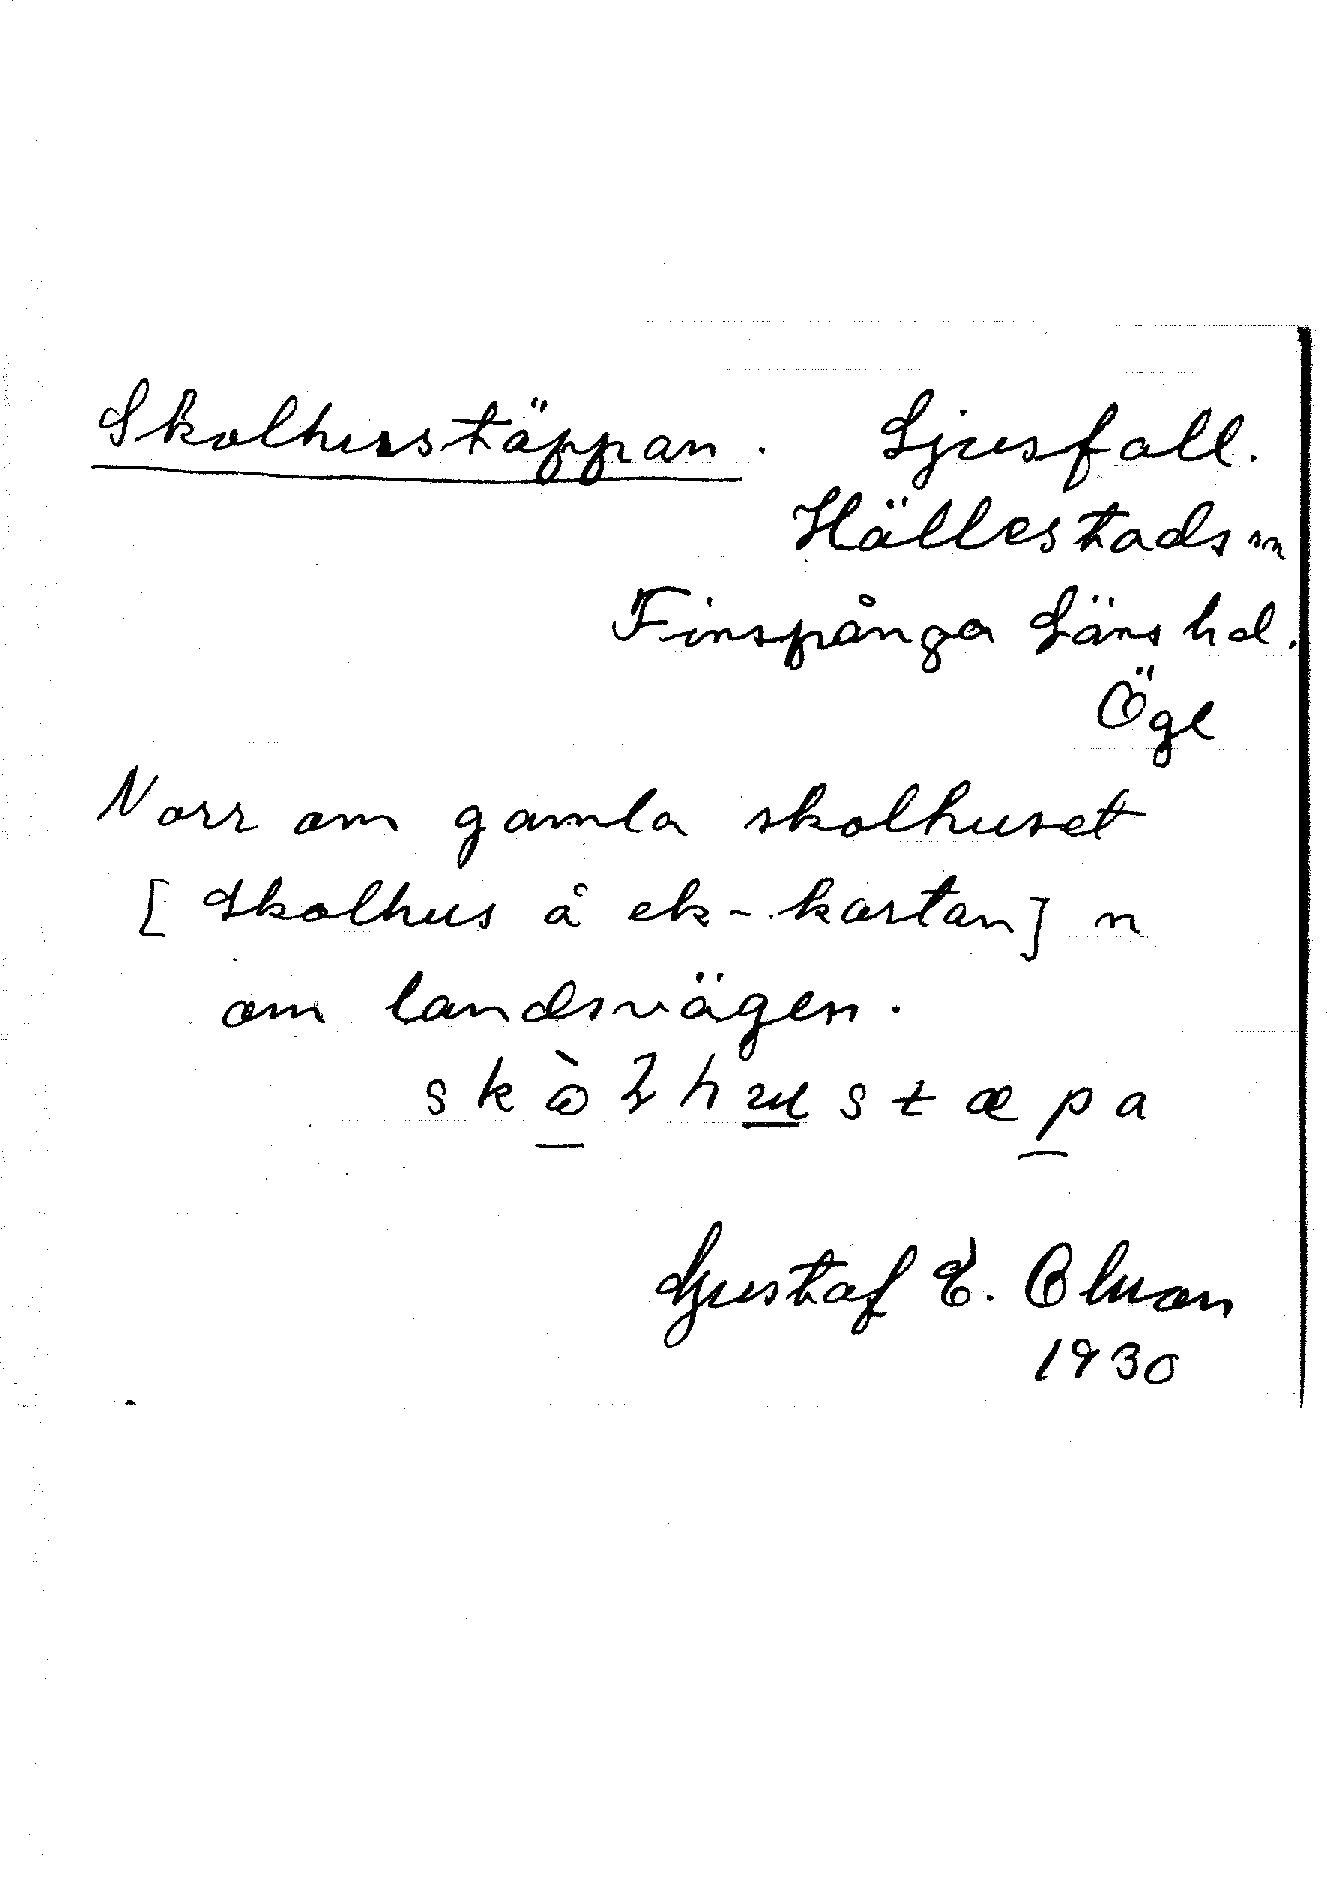 Skolhusstäppan. Ljusfall.
Hällestads sn
Finspånga Läns hd.
Ögl
Norr om gamla skolhuset
[Skolhus å ek-kartan] n
om landsvägen.
Gustaf E.
1930